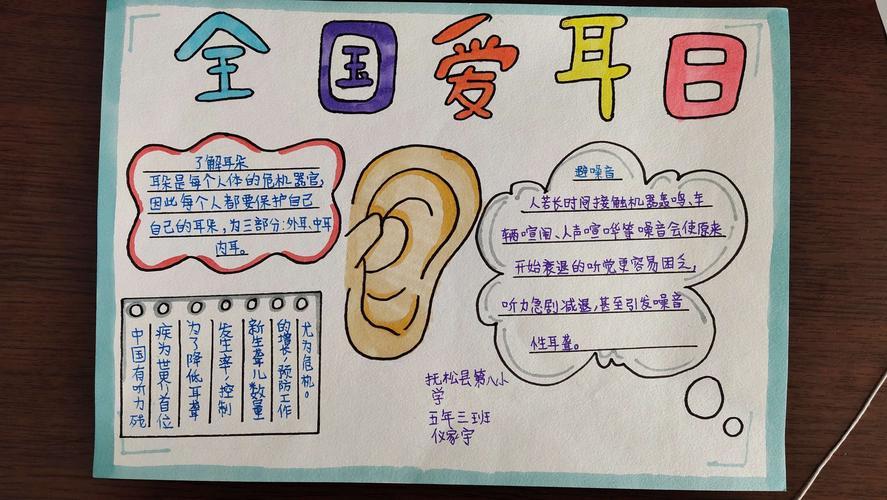 全国爱耳日
了解耳朵
耳朵是每个人体的危机器官,
因此每个人都要保护自己
自己的耳朵,为三部分:外耳、中耳
内耳。
避噪音
人若长时间接触机器轰鸣、车
辆喧闹、人声喧哗等噪音会使原来
开始衰退的听觉更容易困乏,
听力急剧减退,甚至引发噪音
性耳聋。
中国有听力残
疾为世界首位
为了降低耳聋
发生率,控制
新生聋儿数量
的增长,预防工作
尤为危机。
抚松县第八小
学
五年三班
仪家宇